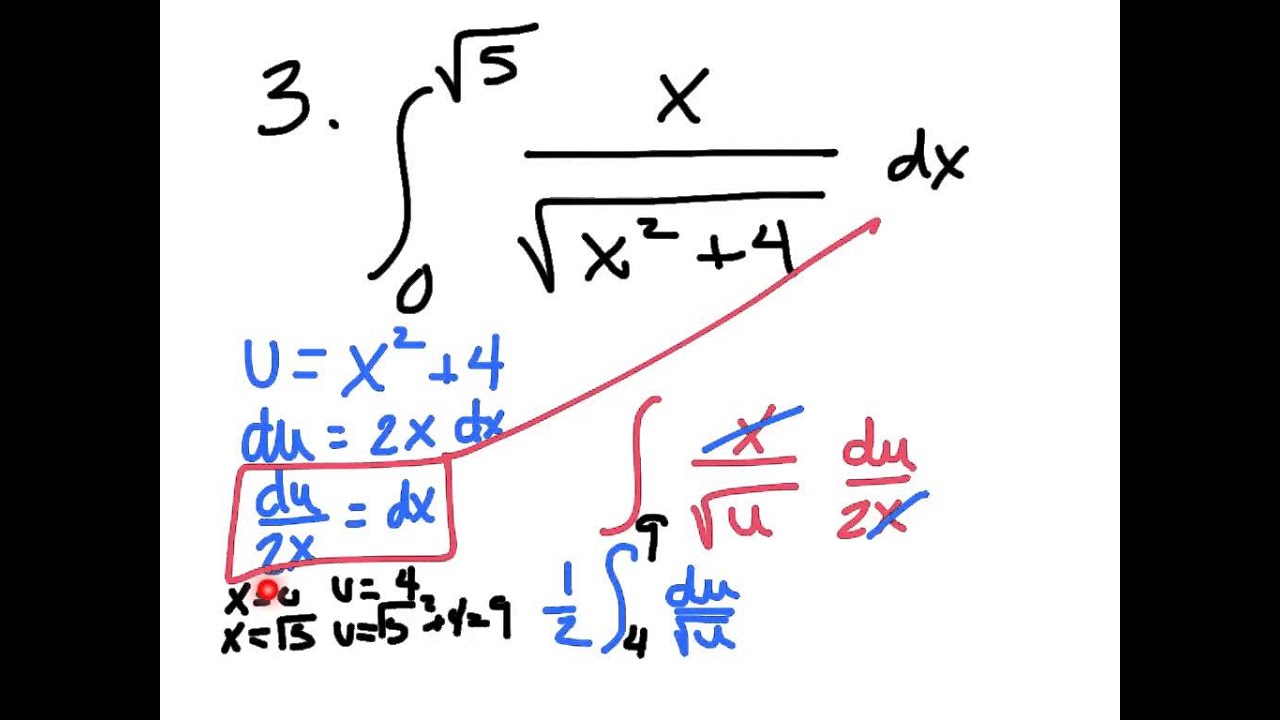 3. ∫₀^√5 x/√(x²+4) dx
u = x² + 4
du = 2x dx
du/2x = dx
∫ x/√u du/2x
x=0 u=4
x=√5 u=√5²+4=9
1/2 ∫₄⁹ du/√u